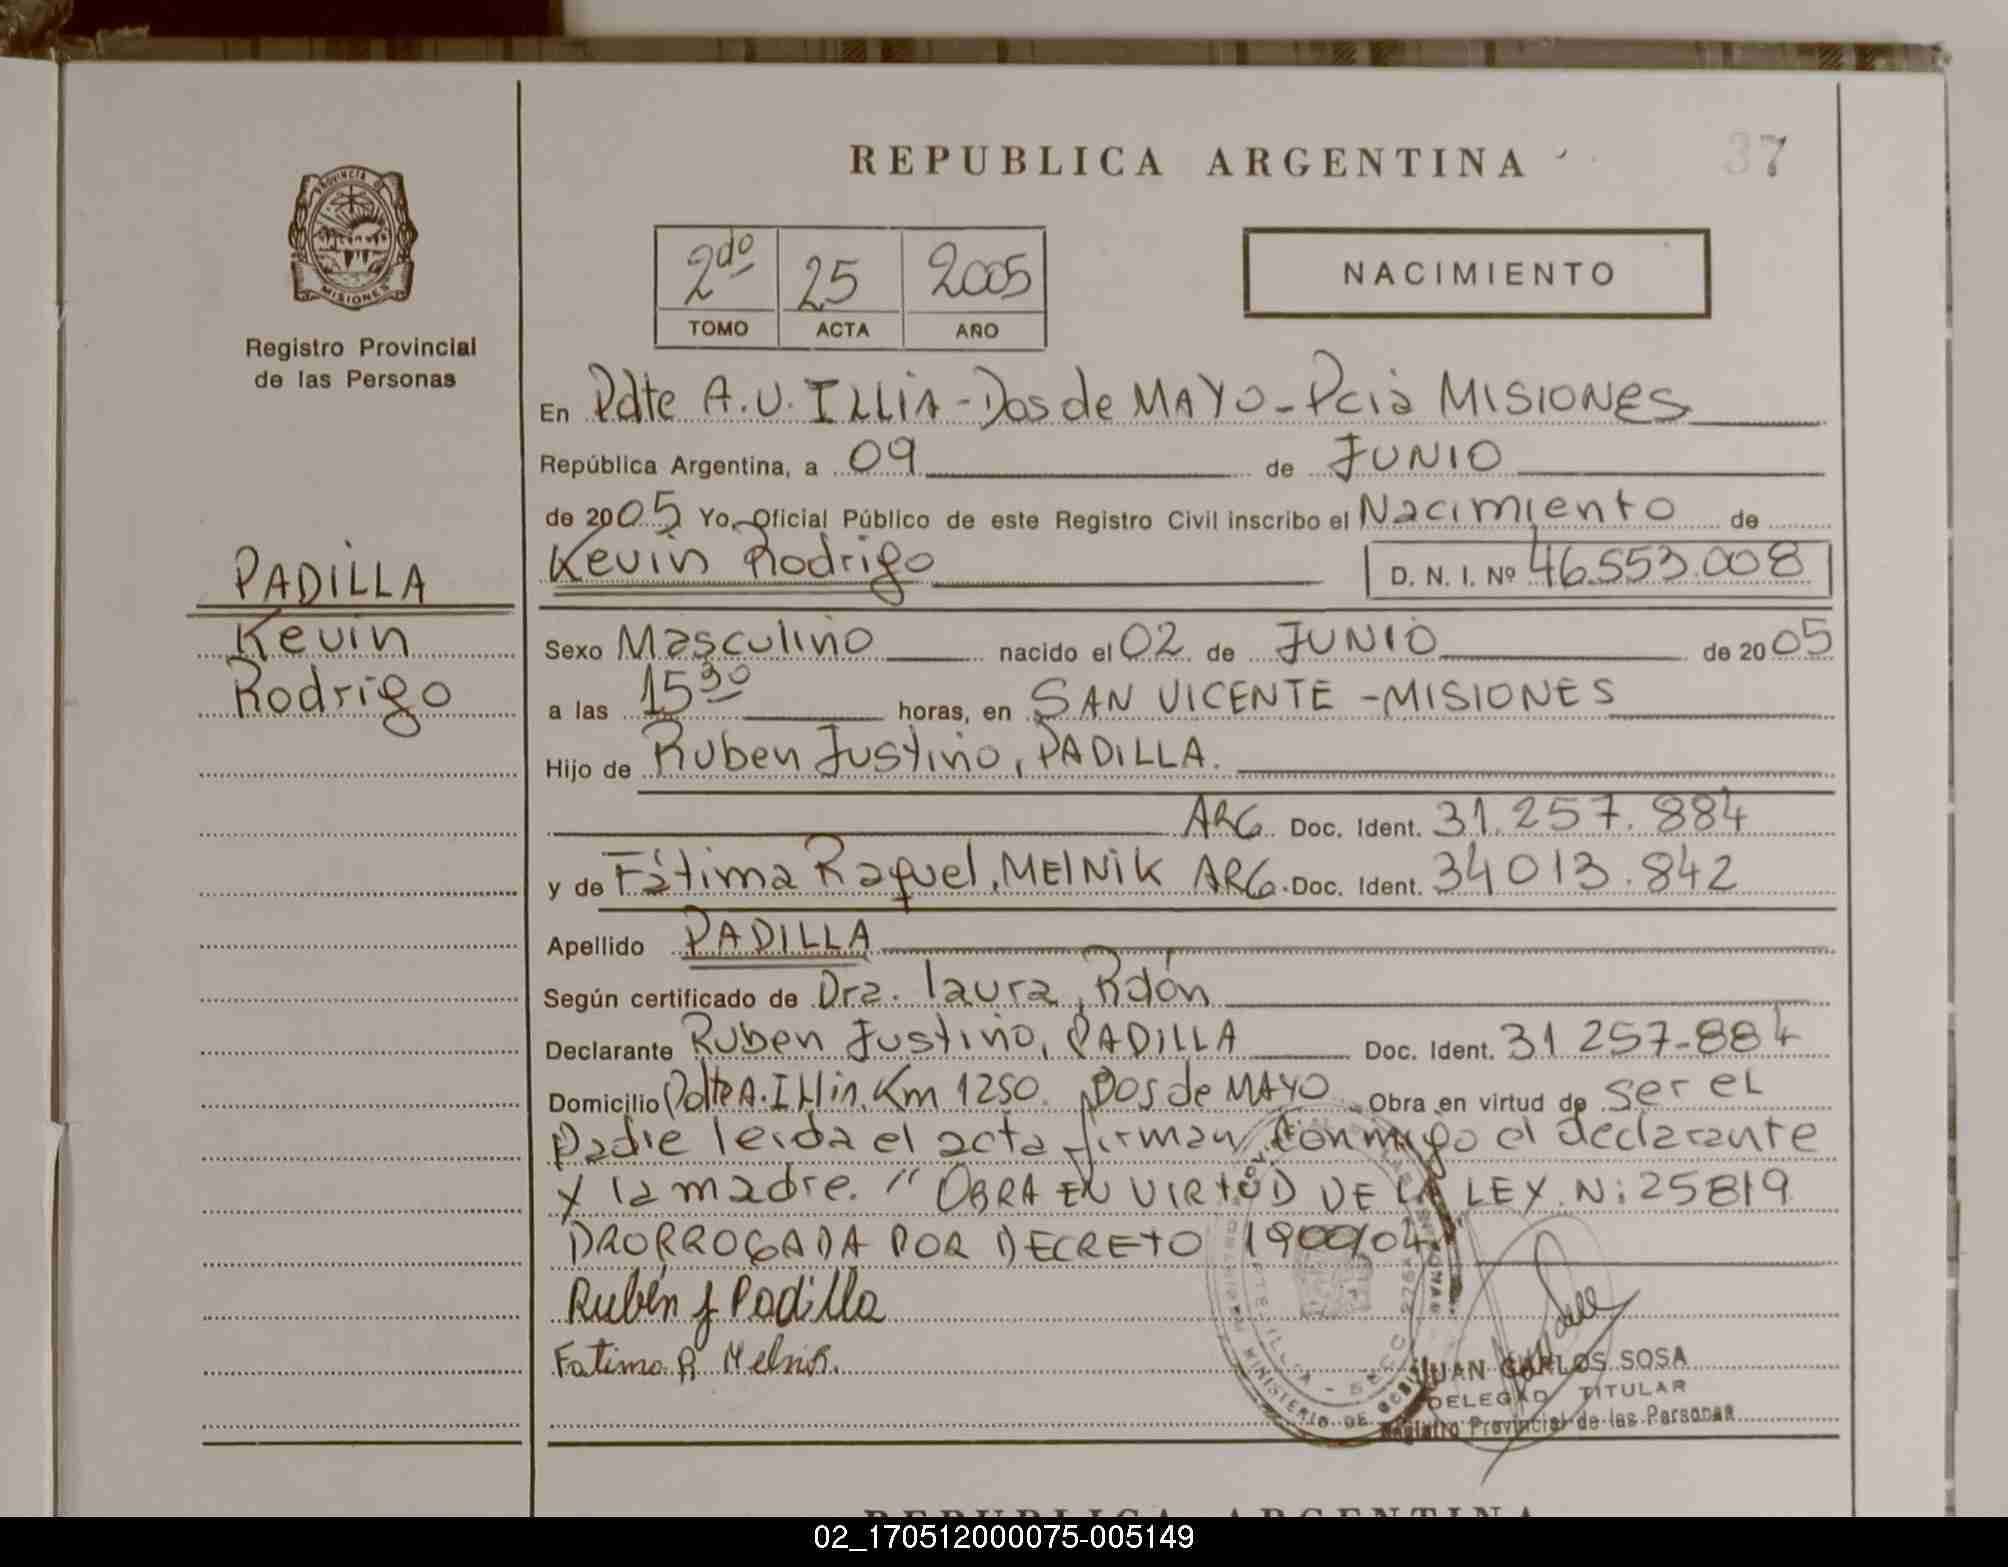 REPUBLICA ARGENTINA
37
PROVINCIA DE
MISIONES
Registro Provincial
de las Personas
2do 25 2005
TOMO ACTA AÑO
NACIMIENTO
En Pdte A.U. ILLIA - Dos de MAYO - Pcia MISIONES
República Argentina, a 09 de JUNIO
de 2005 Yo, Oficial Público de este Registro Civil inscribo el Nacimiento de
Kevin Rodrigo D. N. I. Nº 46.553.008
PADILLA
Kevin
Rodrigo
Sexo Masculino nacido el 02 de JUNIO de 2005
a las 15 30 horas, en SAN VICENTE - MISIONES
Hijo de Ruben Justino, PADILLA.
ARG. Doc. Ident. 31.257.884
y de Fátima Raquel, MELNIK ARG. Doc. Ident. 34013.842
Apellido PADILLA
Según certificado de Dra. laura,
Declarante Ruben Justino, PADILLA Doc. Ident. 31 257-884
Domicilio Pdte A. Illia, Km 1250. Dos de MAYO Obra en virtud de ser el
Padre leida el acta firman conmigo el declarante
y la madre. " OBRA EN VIRTUD DE LA LEY. N: 25819
PRORROGADA POR DECRETO 1900/04
Rubén J Padilla
Fatima R Melnik.
JUAN CARLOS SOSA
DELEGADO TITULAR
Registro Provincial de las Personas
MINISTERIO DE GOBI
REPUBLICA ARGENTINA
02_170512000075-005149